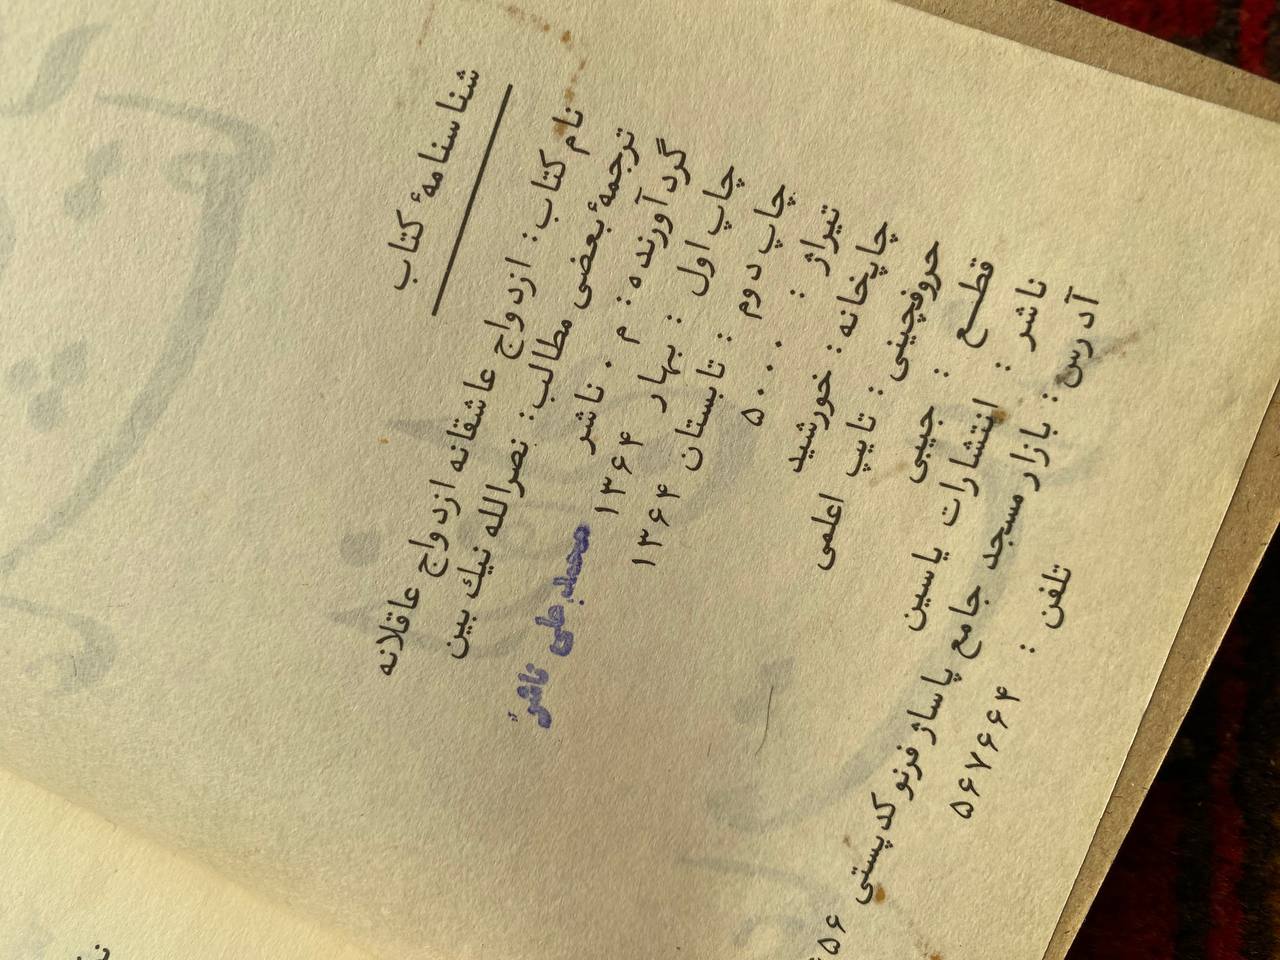 شناسنامهٔ کتاب
نام کتاب : ازدواج عاشقانه ازدواج عاقلانه
ترجمهٔ بعضی مطالب : نصرالله نیک بین
گردآورنده : م . ناشر محمد علی ناشر
چاپ اول : بهار ۱۳۶۴
چاپ دوم : تابستان ۱۳۶۴
تیراژ : ۵۰۰۰
چاپخانه : خورشید
حروفچینی : تایپ اعلمی
قطع : جیبی
ناشر : انتشارات یاسین
آدرس : بازار مسجد جامع پاساژ فرنو کدپستی
تلفن : ۵۶۷۶۶۴